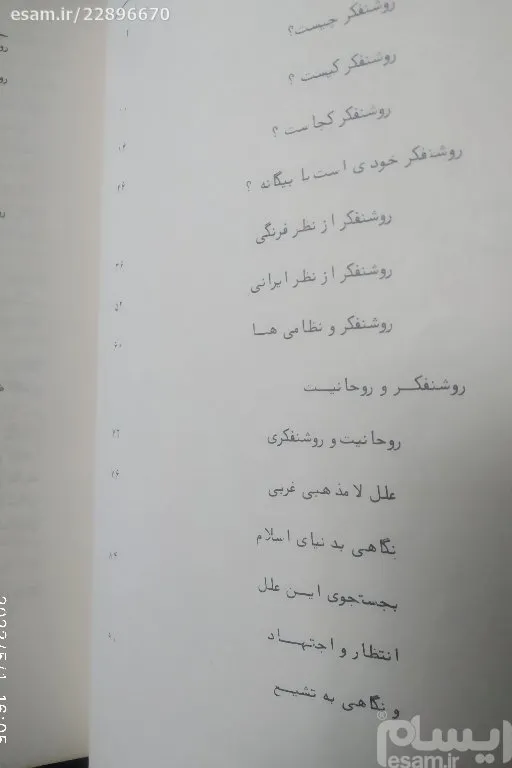 esam.ir/22896670
روشنفکر چیست؟
۱
روشنفکر کیست ؟
روشنفکر کجاست ؟
روشنفکر خودی است یا بیگانه ؟
۲۶
روشنفکر از نظر فرنگی
روشنفکر از نظر ایرانی
۳۶
روشنفکر و نظامی هـا
۵۲
۶۰
روشنفکـر و روحانیـت
روحانیت و روشنفکری
علل لا مذهبی غربی
نگاهی بدنیای اسلام
بجستجوی ایـن علل
۸۴
انتظار و اجتهـاد
و نگاهی به تشیـع
ایسام
esam.ir